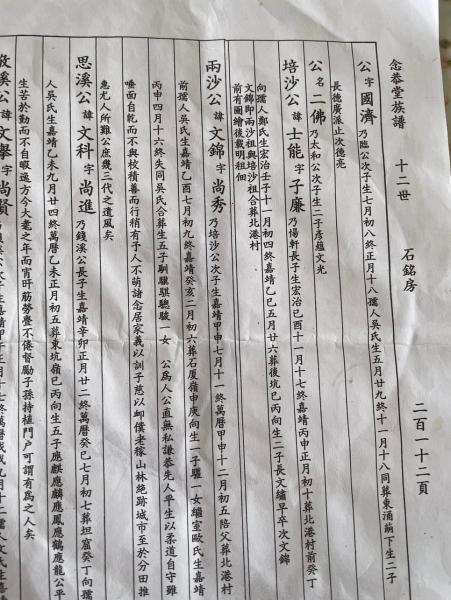 念恭堂族譜 十二世 石銘房 二百一十二頁
公字國濟乃臨公次子生七月初八終正月十八孺人吳氏生五月廿九終十一月十八同葬東涌萌下生二子
長德廣派止次德亮
公名二佛乃太和公次子生二子彥蘊文光
培沙公諱士能字子廉乃傷軒長子生宏治己酉十一月十七終嘉靖丙申正月初十葬北港村前癸丁
向孺人鄭氏生宏治壬子十一月初四終嘉靖乙巳五月廿六葬後坑巳丙向生二子長文繡早卒次文錦
文錦即兩沙祖與培沙祖合葬北港村
前有圖繪後載明租佃
兩沙公諱文錦字尚秀乃培沙公次子生嘉靖甲申七月十一終萬曆甲申十二月初五陪父葬北港村
前孺人吳氏生嘉靖乙酉七月初九終嘉靖癸亥二月初六葬石廈嶺申庚向生一子驥一女繼室歐氏生嘉靖
丙申四月十六終失同吳氏合葬生五子馴驥騏驄駿一女 公為人公直無私謙恭先人平生以柔道自守雖
唾面自乾而不與校積善而行稍有于人不萌諸念居家義以訓子慈以卹僕老稼山林絕跡城市至於分田推
惠尤人所難公庶幾三代之遺風矣
思溪公諱文科字尚進乃錢溪公長子生嘉靖辛卯正月廿二終萬曆癸巳七月初七葬坦窟癸丁向孺
人吳氏生嘉靖乙未九月廿四終萬曆乙未正月初五葬東坑嶺巳丙向生五子應麒應麟應鳳應鶴應龍公平
生苦於勤而不自暇逸方今大耄之年而宵旰筋勞疊不倦督勵子孫持植門户可謂有為之人矣
敬溪公諱文舉字尚賢